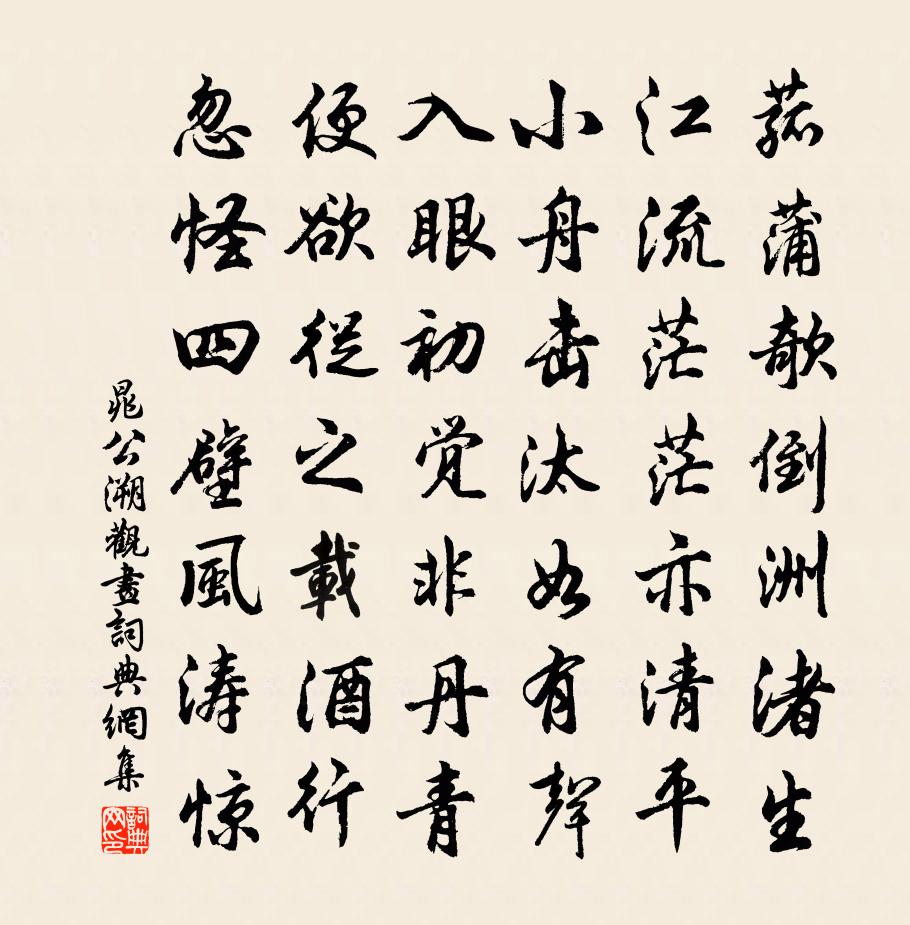 菰蒲欹倒洲渚生
江流茫茫亦清平
小舟击汰如有聲
入眼初觉非丹青
便欲從之載酒行
忽怪四壁風涛惊
晁公溯觀畫詞典網集
詞典网印